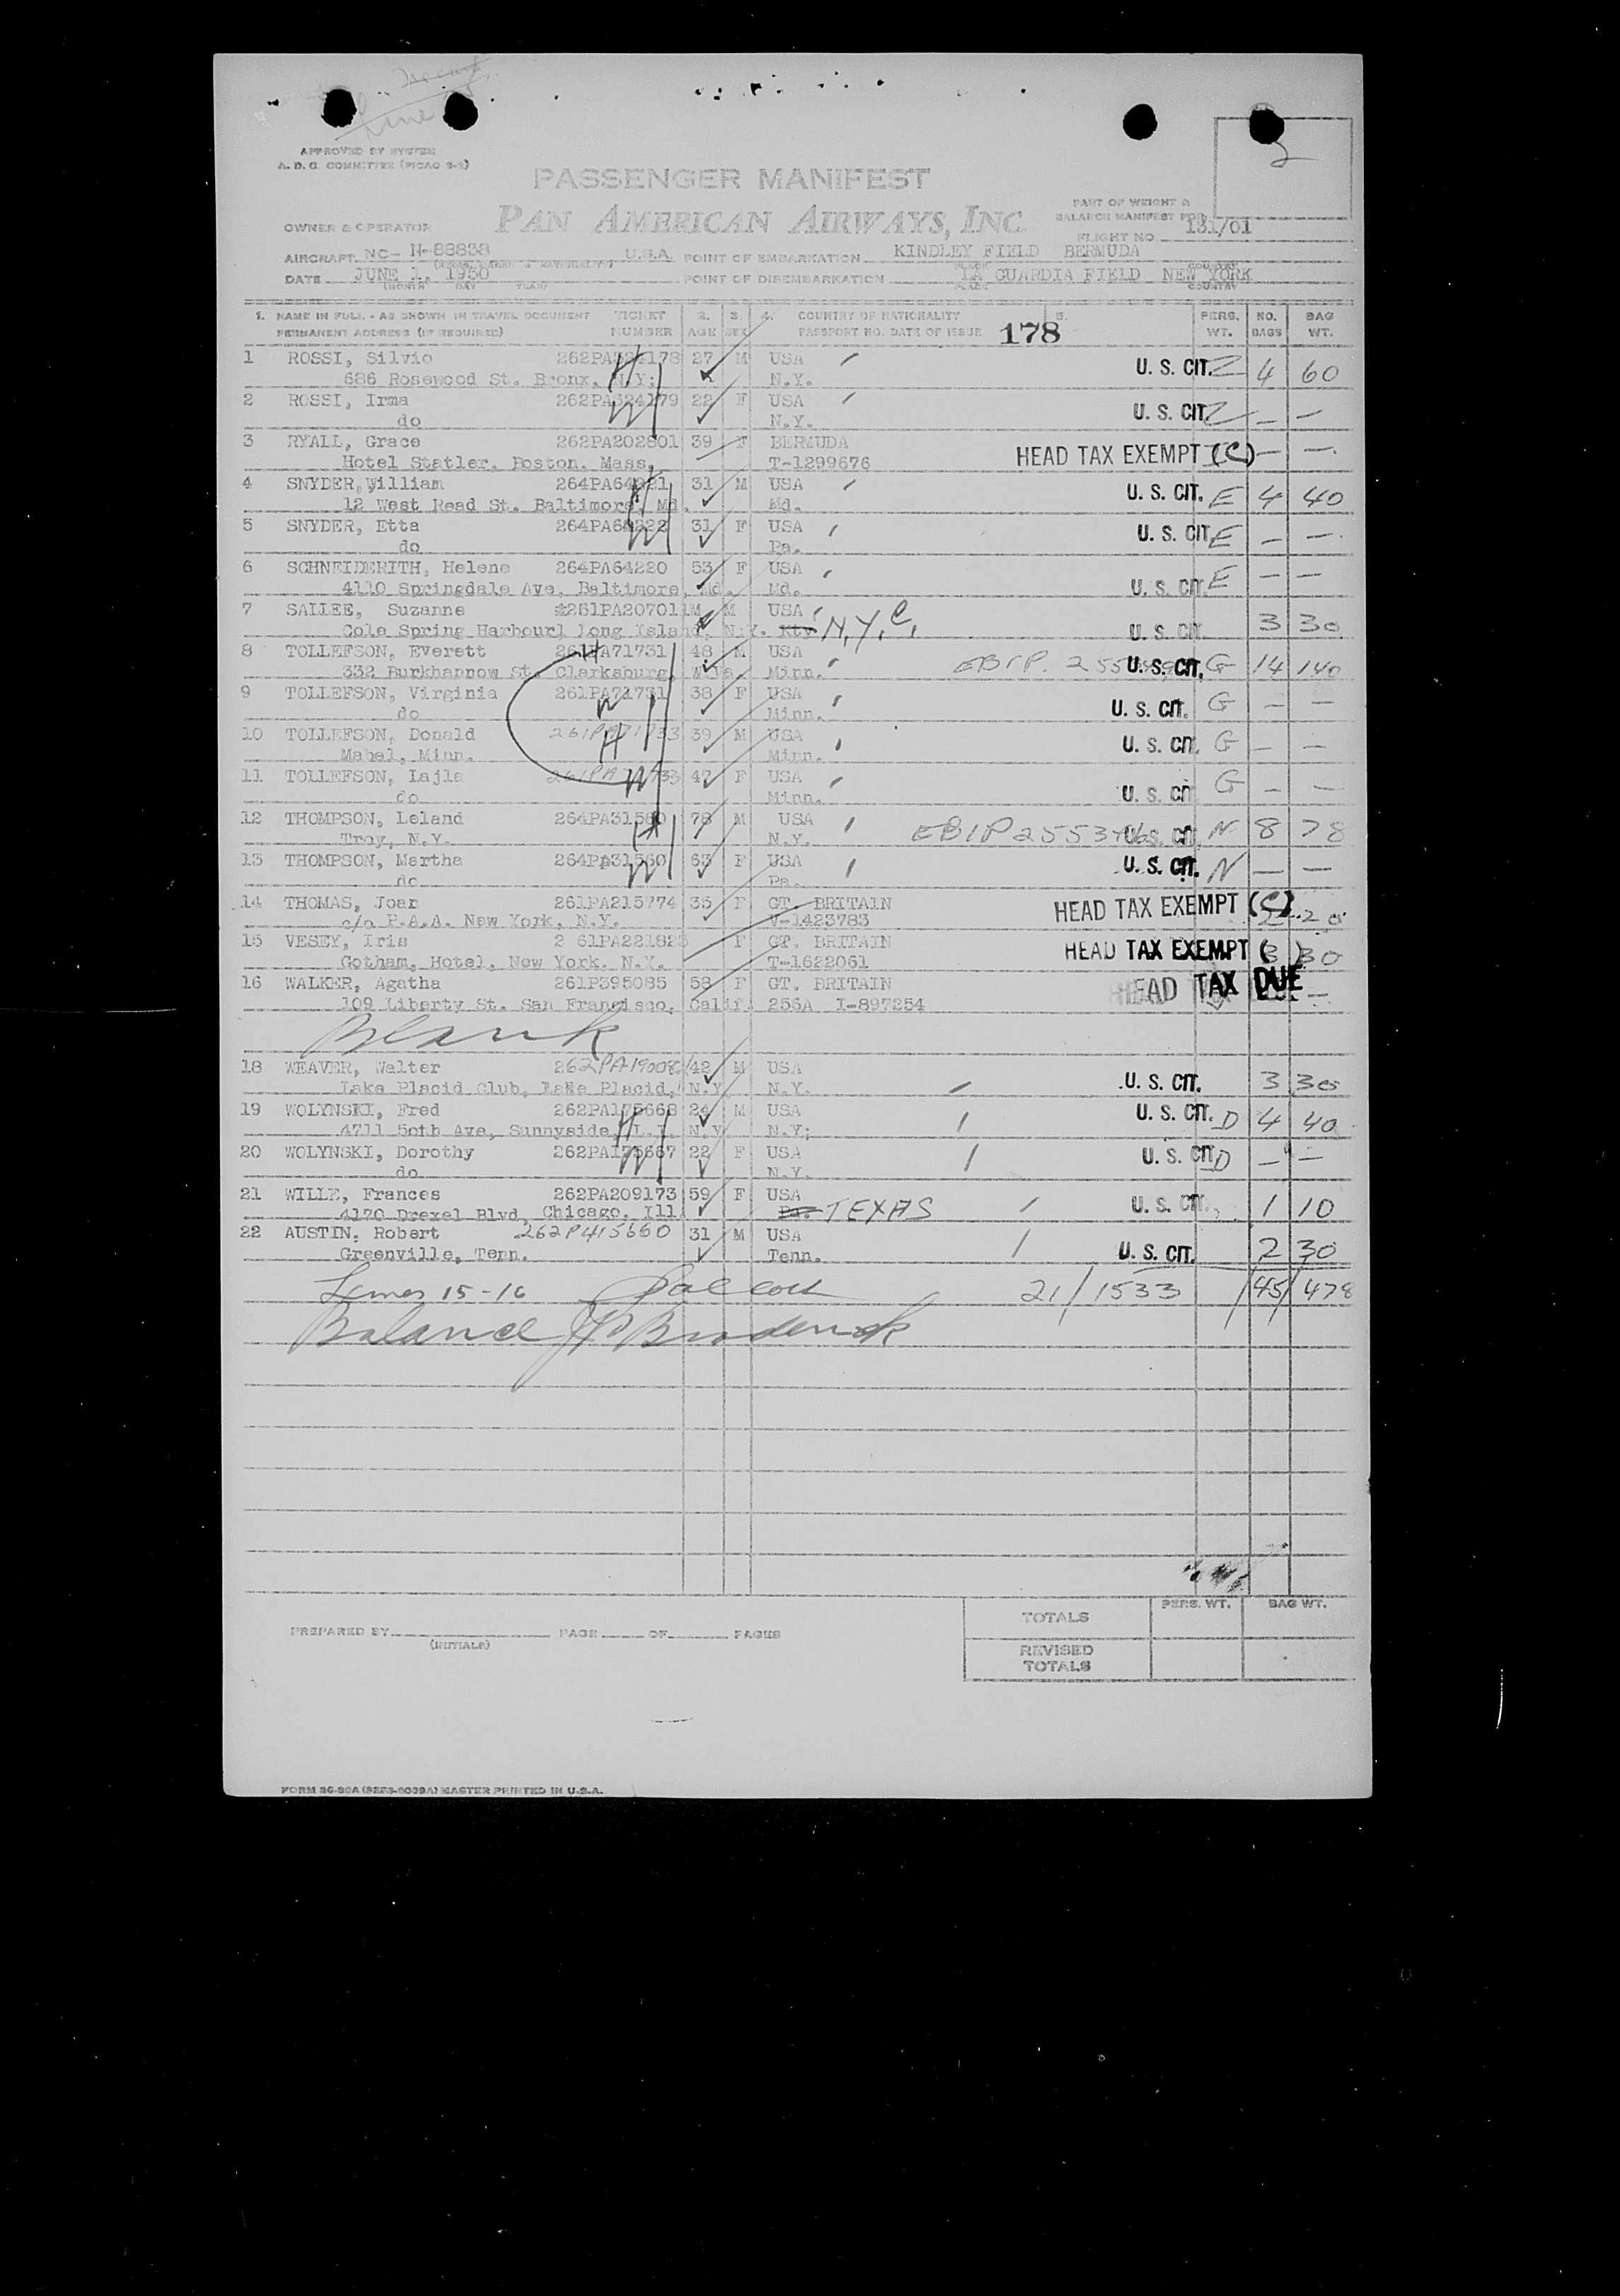 2
APPROVED BY SYSTEM
A. D. C. COMMITTEE (PICAO 2-1)
PASSENGER MANIFEST
OWNER & OPERATOR PAN AMERICAN AIRWAYS, INC. PART OF WEIGHT & BALANCE MANIFEST FOR
FLIGHT NO. 131/01
AIRCRAFT NC- N-88838 U.S.A. POINT OF EMBARKATION KINDLEY FIELD BERMUDA
DATE JUNE 1, 1950 POINT OF DISEMBARKATION LA GUARDIA FIELD NEW YORK
(MONTH DAY YEAR) PLACE COUNTRY
1. NAME IN FULL - AS SHOWN IN TRAVEL DOCUMENT TICKET 2. 3. 4. COUNTRY OF NATIONALITY 5. PERS. NO. BAG
PERMANENT ADDRESS (IF REQUIRED) NUMBER AGE SEX PASSPORT NO. DATE OF ISSUE 178 WT. BAGS WT.
1 ROSSI, Silvio 27 M USA U. S. CIT. Z 4 60
686 Rosewood St. Bronx, N.Y. N.Y.
2 ROSSI, Irma 262PA324179 22 F USA U. S. CIT. Z — —
do N.Y.
3 RYALL, Grace 262PA202801 39 F BERMUDA HEAD TAX EXEMPT (C) — —
Hotel Statler, Boston, Mass. T-1299676
4 SNYDER, William 31 M USA U. S. CIT. E 4 40
12 West Read St. Baltimore, Md. Md.
5 SNYDER, Etta 264PA64222 31 F USA U. S. CIT. E — —
do Pa.
6 SCHNEIDERITH, Helene 264PA64220 53 F USA U. S. CIT. E — —
4110 Springdale Ave, Baltimore, Md. Md.
7 SALLEE, Suzanne 261PA207011 M USA U. S. CIT. 3 30
Cole Spring Harbourl long Island, N.Y. Kty N.Y.C.
8 TOLLEFSON, Everett 261PA71731 48 M USA U. S. CIT. G 14 140
332 Burkhannow St. Clarksburg, W.Va. Minn. EBIP
9 TOLLEFSON, Virginia 261PA71731 38 F USA U. S. CIT. G — —
do Minn.
10 TOLLEFSON, Donald 39 M USA U. S. CIT. G — —
Mabel, Minn. Minn.
11 TOLLEFSON, Lajla F USA U. S. CIT. G — —
do Minn.
12 THOMPSON, Leland 264PA31560 78 M USA U. S. CIT. N 8 78
Troy, N.Y. N.Y. EBIP
13 THOMPSON, Martha 264PA31560 63 F USA U. S. CIT. N — —
do Pa.
14 THOMAS, Joan 261PA215774 35 F GT. BRITAIN HEAD TAX EXEMPT (C) 2 20
c/o P.A.A. New York, N.Y. V-1423783
15 VESEY, Iris F GT. BRITAIN HEAD TAX EXEMPT ( ) 3 30
Gotham, Hotel, New York. N.Y. T-1622061
16 WALKER, Agatha 261P395085 58 F GT. BRITAIN HEAD TAX DUE —
109 Liberty St. San Francisco, Calif. 256A I-897254
Blank
18 WEAVER, Walter 42 M USA U. S. CIT. 3 30
Lake Placid Club, Lake Placid, N.Y. N.Y.
19 WOLYNSKI, Fred 262PA175668 24 M USA U. S. CIT. D 4 40
4711 50th Ave, Sunnyside, L.I. N.Y. N.Y;
20 WOLYNSKI, Dorothy 262PA175667 22 F USA U. S. CIT. D — —
do N.Y.
21 WILLE, Frances 262PA209173 59 F USA U. S. CIT. 1 10
4170 Drexel Blvd, Chicago, Ill. TEXAS
22 AUSTIN, Robert 262P415660 31 M USA U. S. CIT. 2 30
Greenville, Tenn. Tenn.
Lines 15-16 21/1533 /45/ 478
Balance Broderick
TOTALS PERS. WT. BAG WT.
PREPARED BY PAGE OF PAGES
(INITIALS)
REVISED
TOTALS
MASTER PRINTED IN U.S.A.